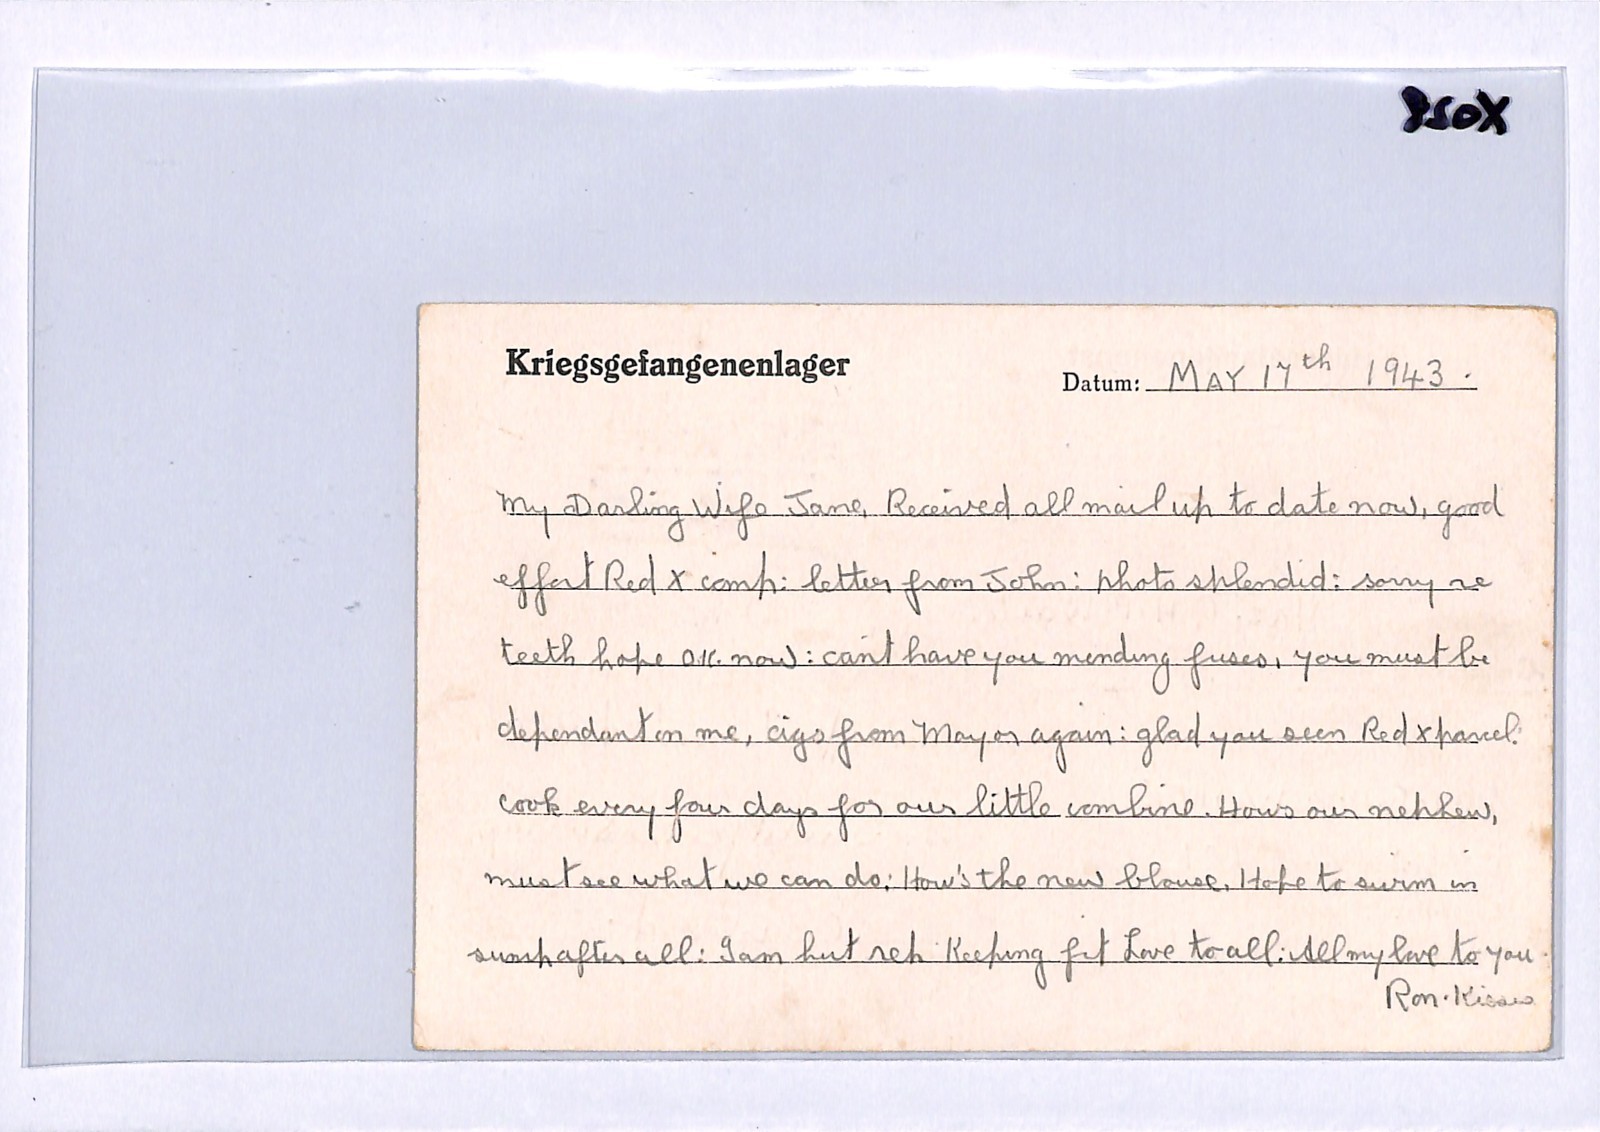 Kriegsgefangenenlager
Datum: MAY 17th 1943.
My Darling Wife Jane, Received all mail up to date now, good
effort Red X comp: letter from John: photo splendid: sorry re
teeth hope O.K. now: can't have you mending fuses, you must be
dependant on me, cigs from Mayor again: glad you seen Red X parcel:
cook every four days for our little combine. Hows our nephew,
must see what we can do: How's the new blouse, Hope to swim in
sump after all: I am hut rep Keeping fit Love to all: All my love to you.
Ron. Kisses